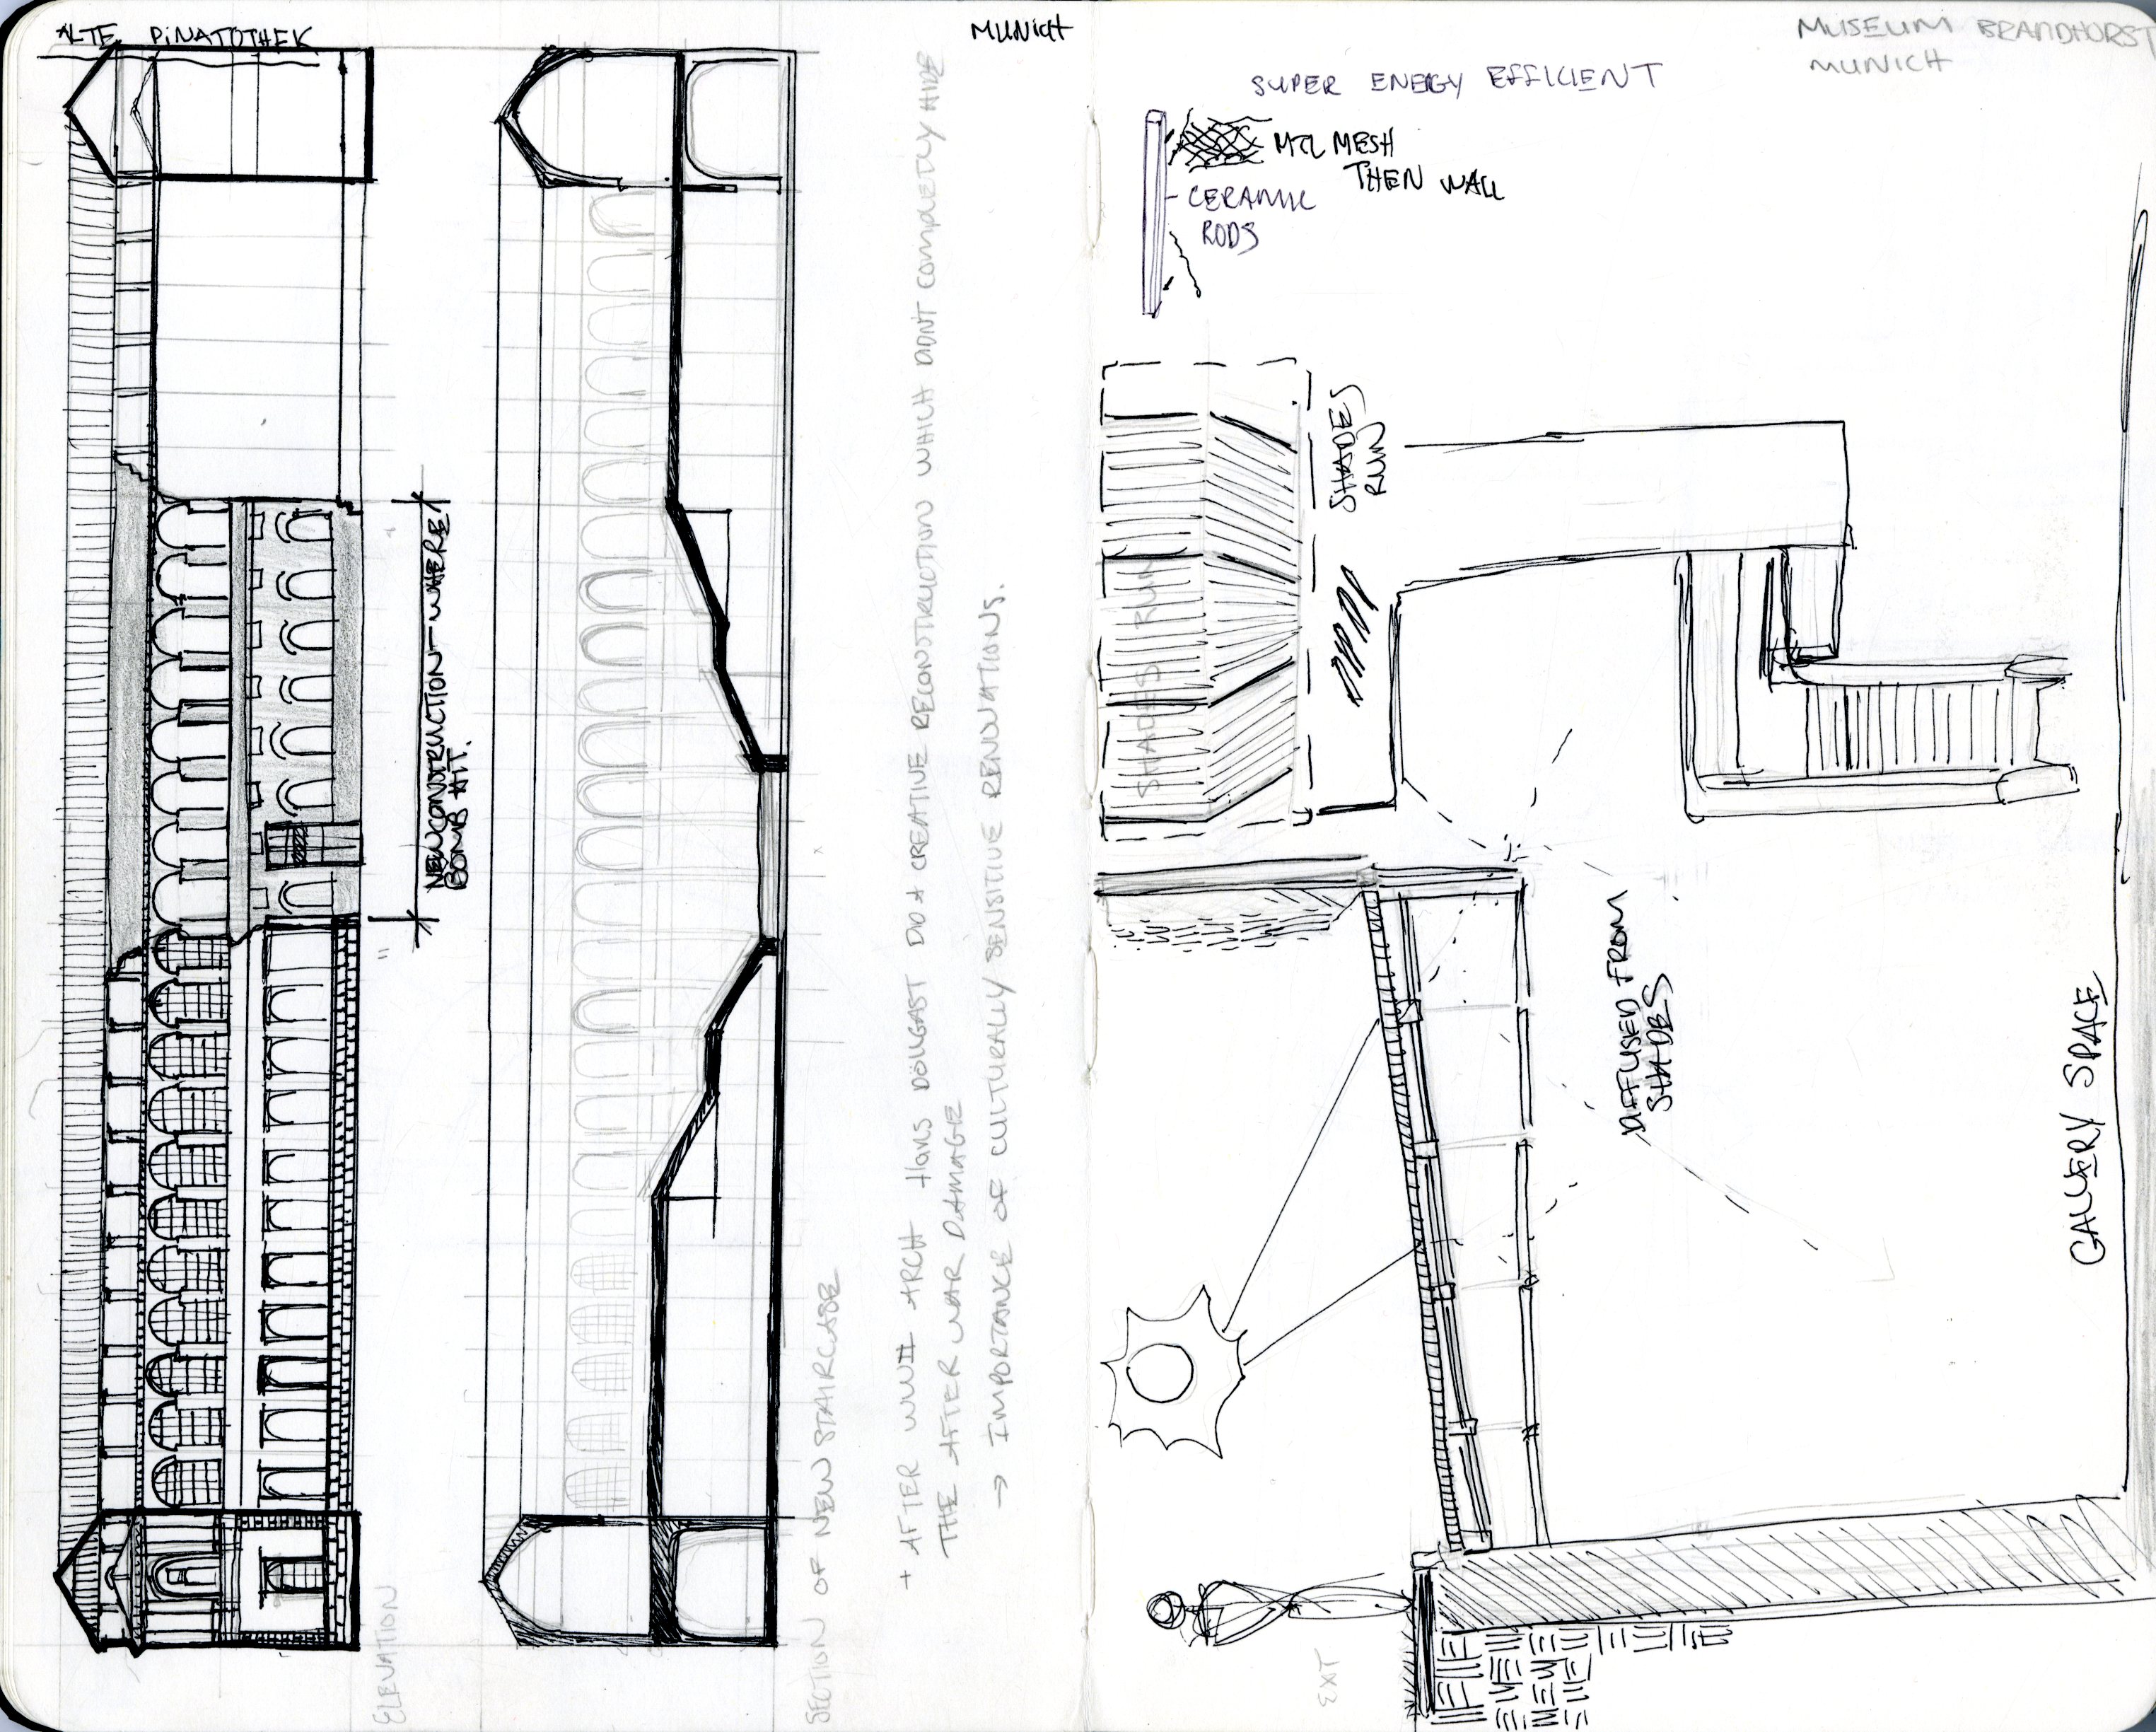 ALTE PINATOTHEK
MUNICH
NEW CONSTRUCTION - WHERE
BOMB HIT.
ELEVATION
SECTION OF NEW STAIRCASE
+ AFTER WWII ARCH HANS DÖLLGAST DO A CREATIVE RECONSTRUCTION WHICH DIDN'T COMPLETLY HIDE
THE AFTER WAR DAMAGE
→ IMPORTANCE OF CULTURALLY SENSITIVE RENOVATIONS.
MUSEUM BRANDHORST
MUNICH
SUPER ENERGY EFFICIENT
MTL MESH
THEN WALL
CERAMIC
RODS
SHADES
RUN
SHADES RUN
DIFFUSED FROM
SHADES
GALLERY SPACE
EXT